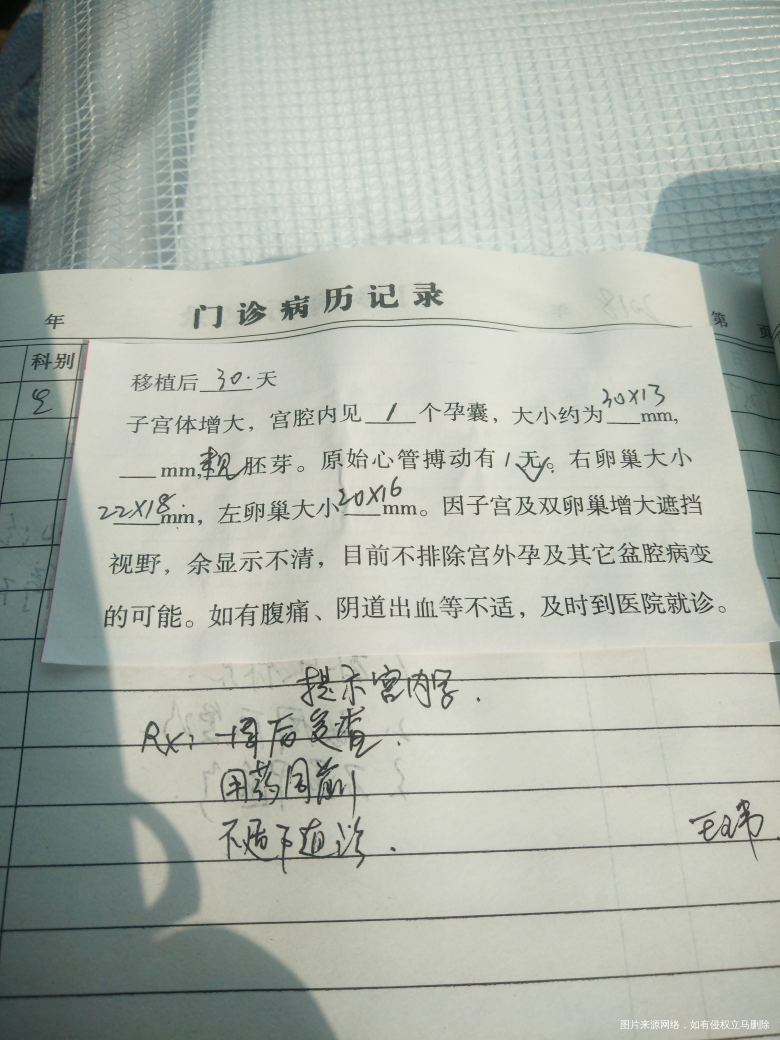 门诊病历记录
年
第 页
科别
移植后 30 天
子宫体增大，宫腔内见 1 个孕囊，大小约为 30×13 mm,
___mm,未见胚芽。原始心管搏动有/无√。右卵巢大小
22×18 mm，左卵巢大小 20×16 mm。因子宫及双卵巢增大遮挡
视野，余显示不清，目前不排除宫外孕及其它盆腔病变
的可能。如有腹痛、阴道出血等不适，及时到医院就诊。
提示宫内孕.
Rx: 一周后复查.
用药同前
不适随诊.
图片来源网络，如有侵权立马删除